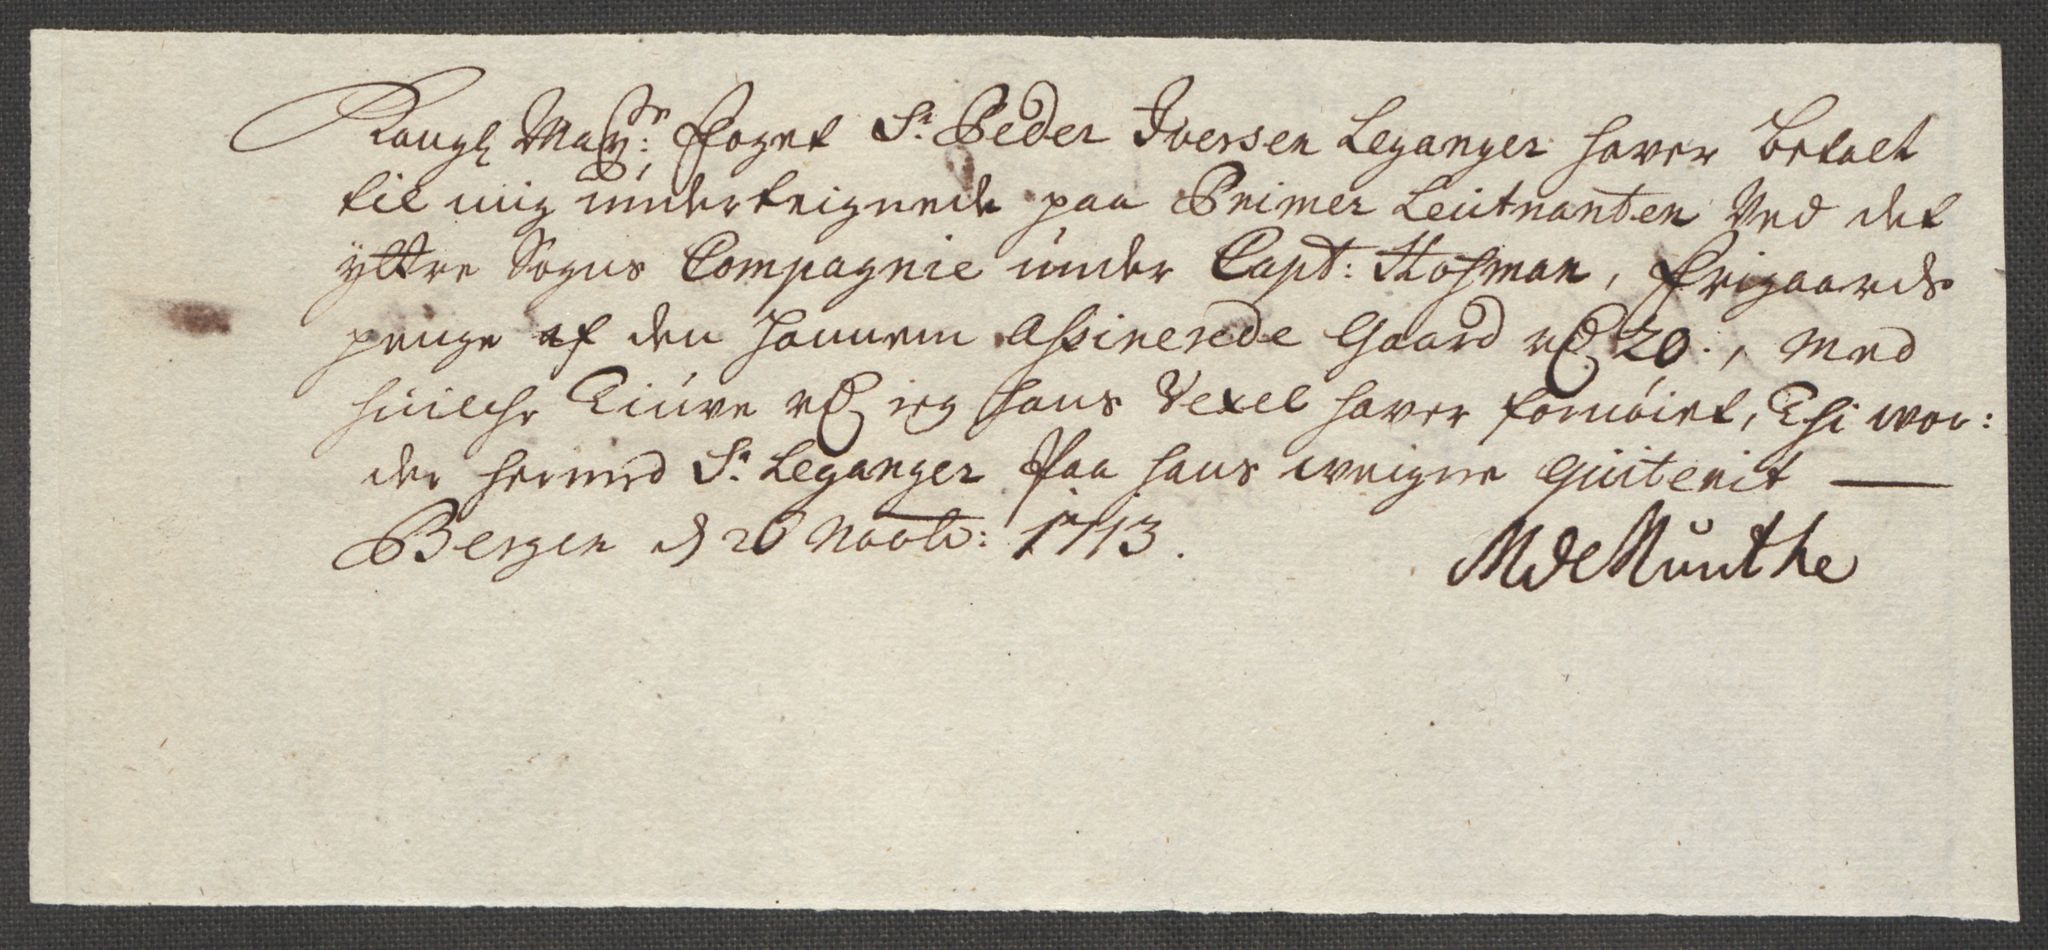 Kongl Mayts: Foget Sr. Peder Iversen Leganger haver betalt
til mig underteignede paa Primer Leutnanten ved det
yttre Sogns Compagnie under Capt: Hofman, frigaards
penge af den hannem Assinerede Gaard rd 20., med
huilche Tiúve rd ieg hans Vexel haver fornöiet, Thi wor:
der hermed Sr. Leganger paa hans weigne Quiterit —
Bergen d 20 Novb: 1713.
M de Munthe